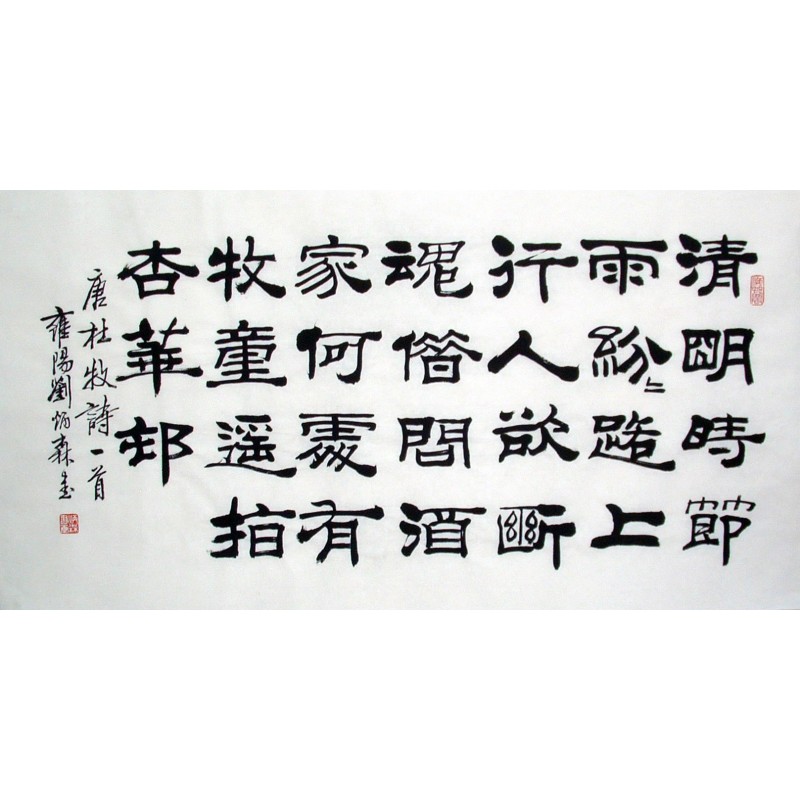 清明時節
雨紛〻路上
行人欲斷
魂借問酒
家何處有
牧童遥指
杏華邨
唐杜牧詩一首
雍陽劉炳森書